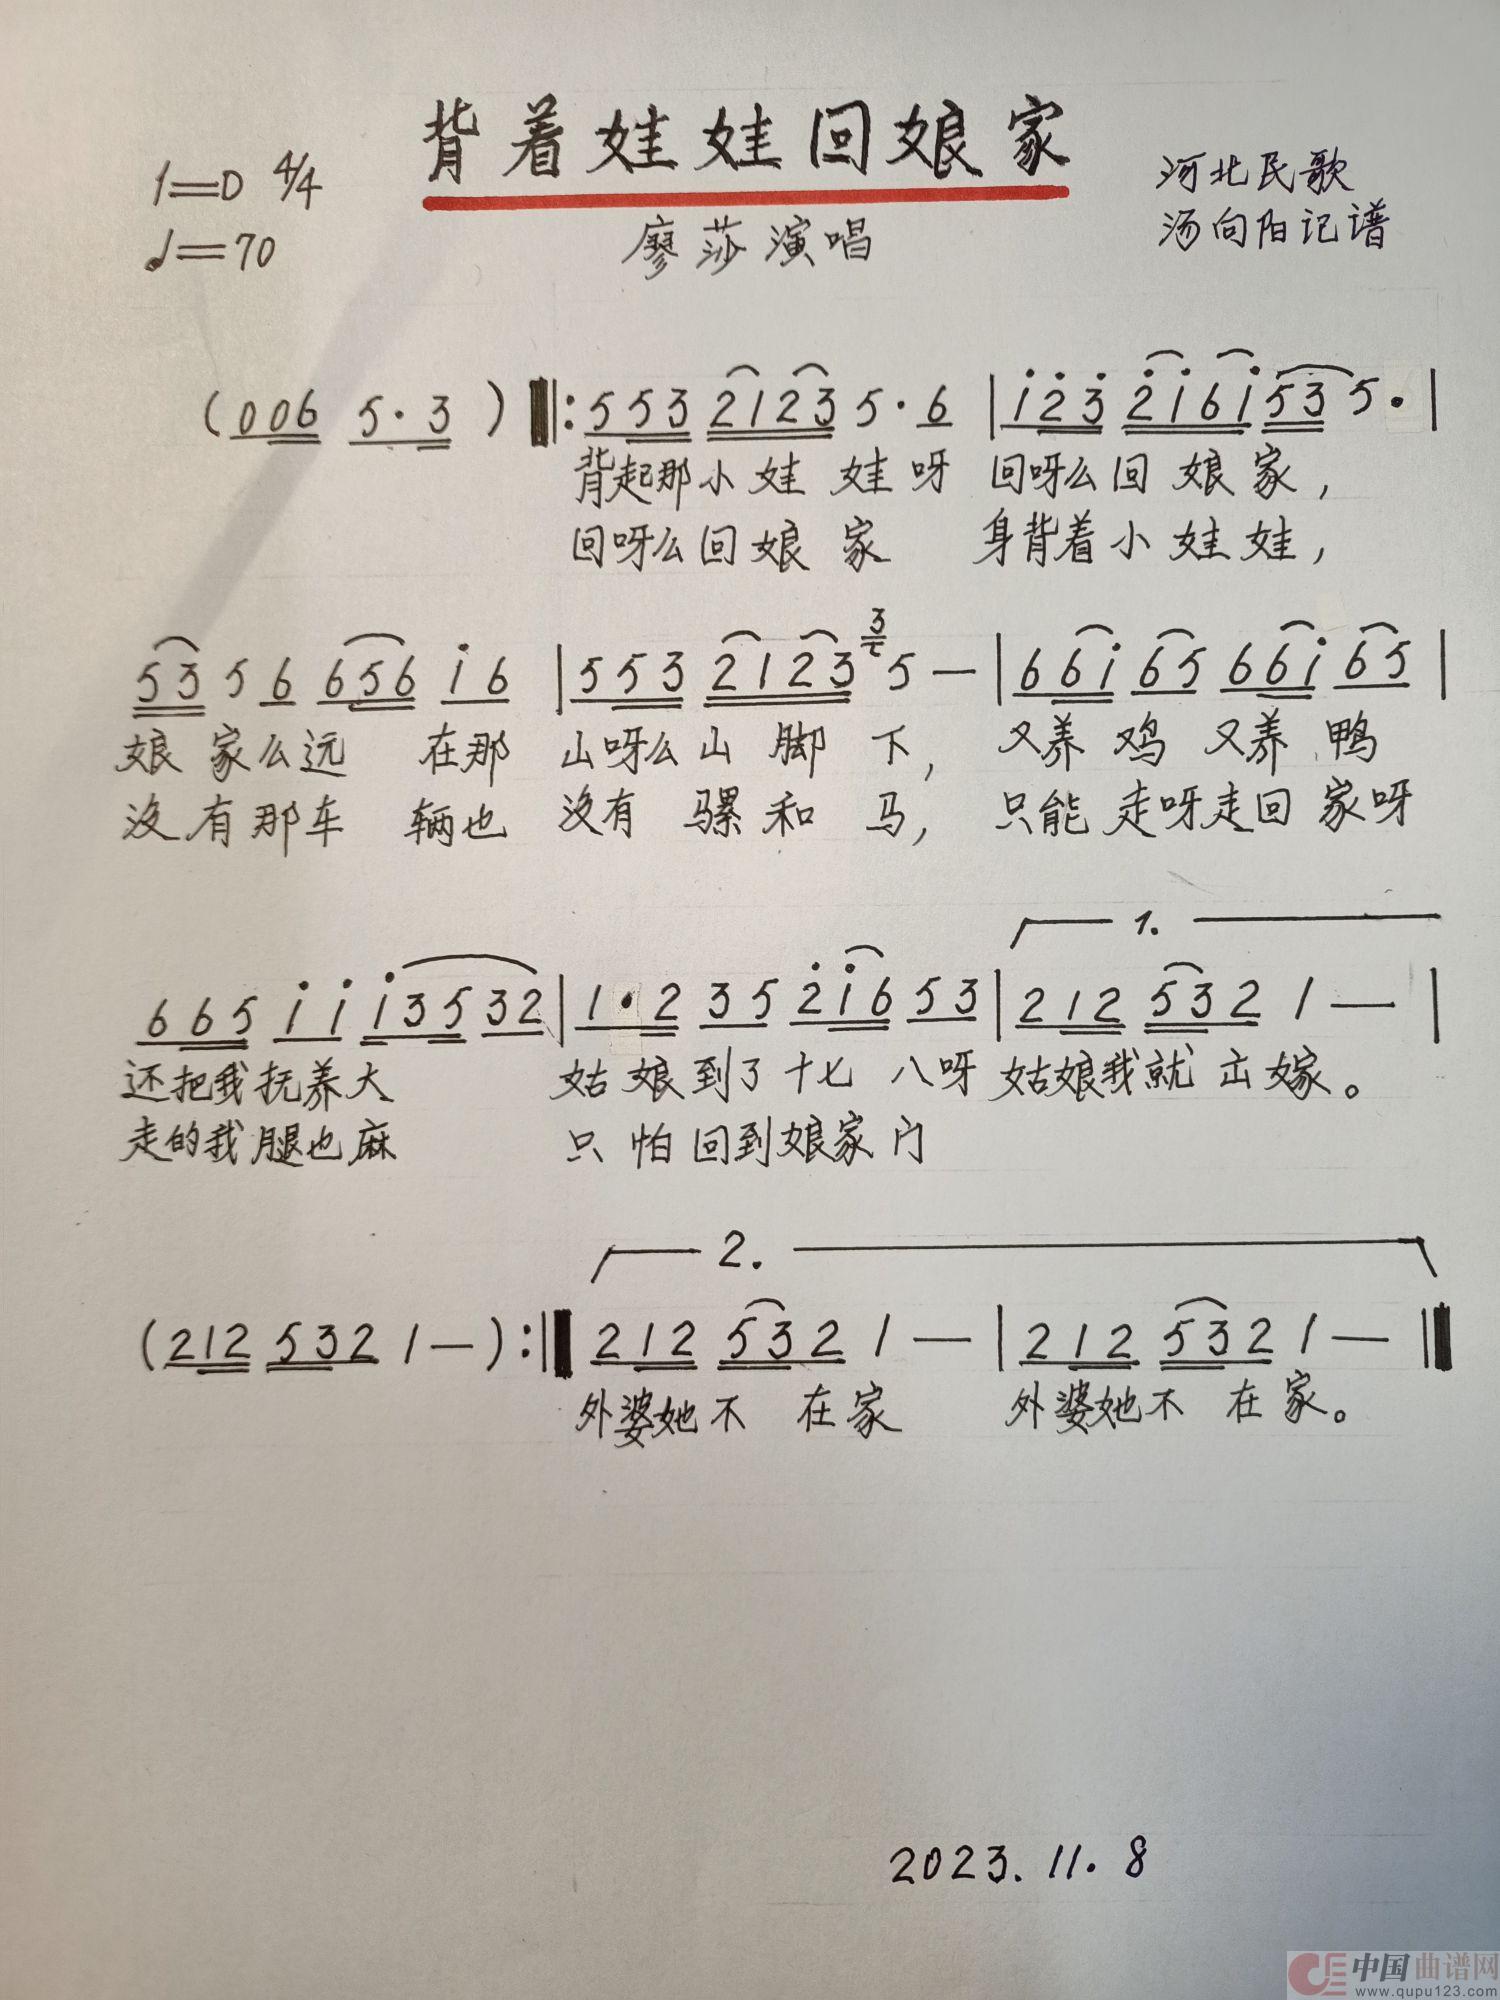 背着娃娃回娘家
1=D 4/4
河北民歌
♩=70
廖莎演唱
汤向阳记谱
(006 5·3) ‖: 553 2123 5·6 | i̇2̇3̇ 2̇i̇6i̇ 53 5· |
背起那小娃娃呀 回呀么回娘家,
回呀么回娘家 身背着小娃娃,
53 5 6 656 i̇6 | 553 2123 3 5 — | 66i̇ 65 66i̇ 65 |
娘家么远 在那 山呀么山脚下, 又养鸡又养鸭
没有那车辆也 没有骡和马, 只能走呀走回家呀
1.
665 i̇i̇ i̇35 32 | 1·2 35 2̇i̇6 53 | 212 532 1 — |
还把我抚养大 姑娘到了十七八呀 姑娘我就出嫁。
走的我腿也麻 只怕回到娘家门
2.
(212 532 1 —) :‖ 212 532 1 — | 212 532 1 — ‖
外婆她不在家 外婆她不在家。
2023.11.8
中国曲谱网
www.qupu123.com